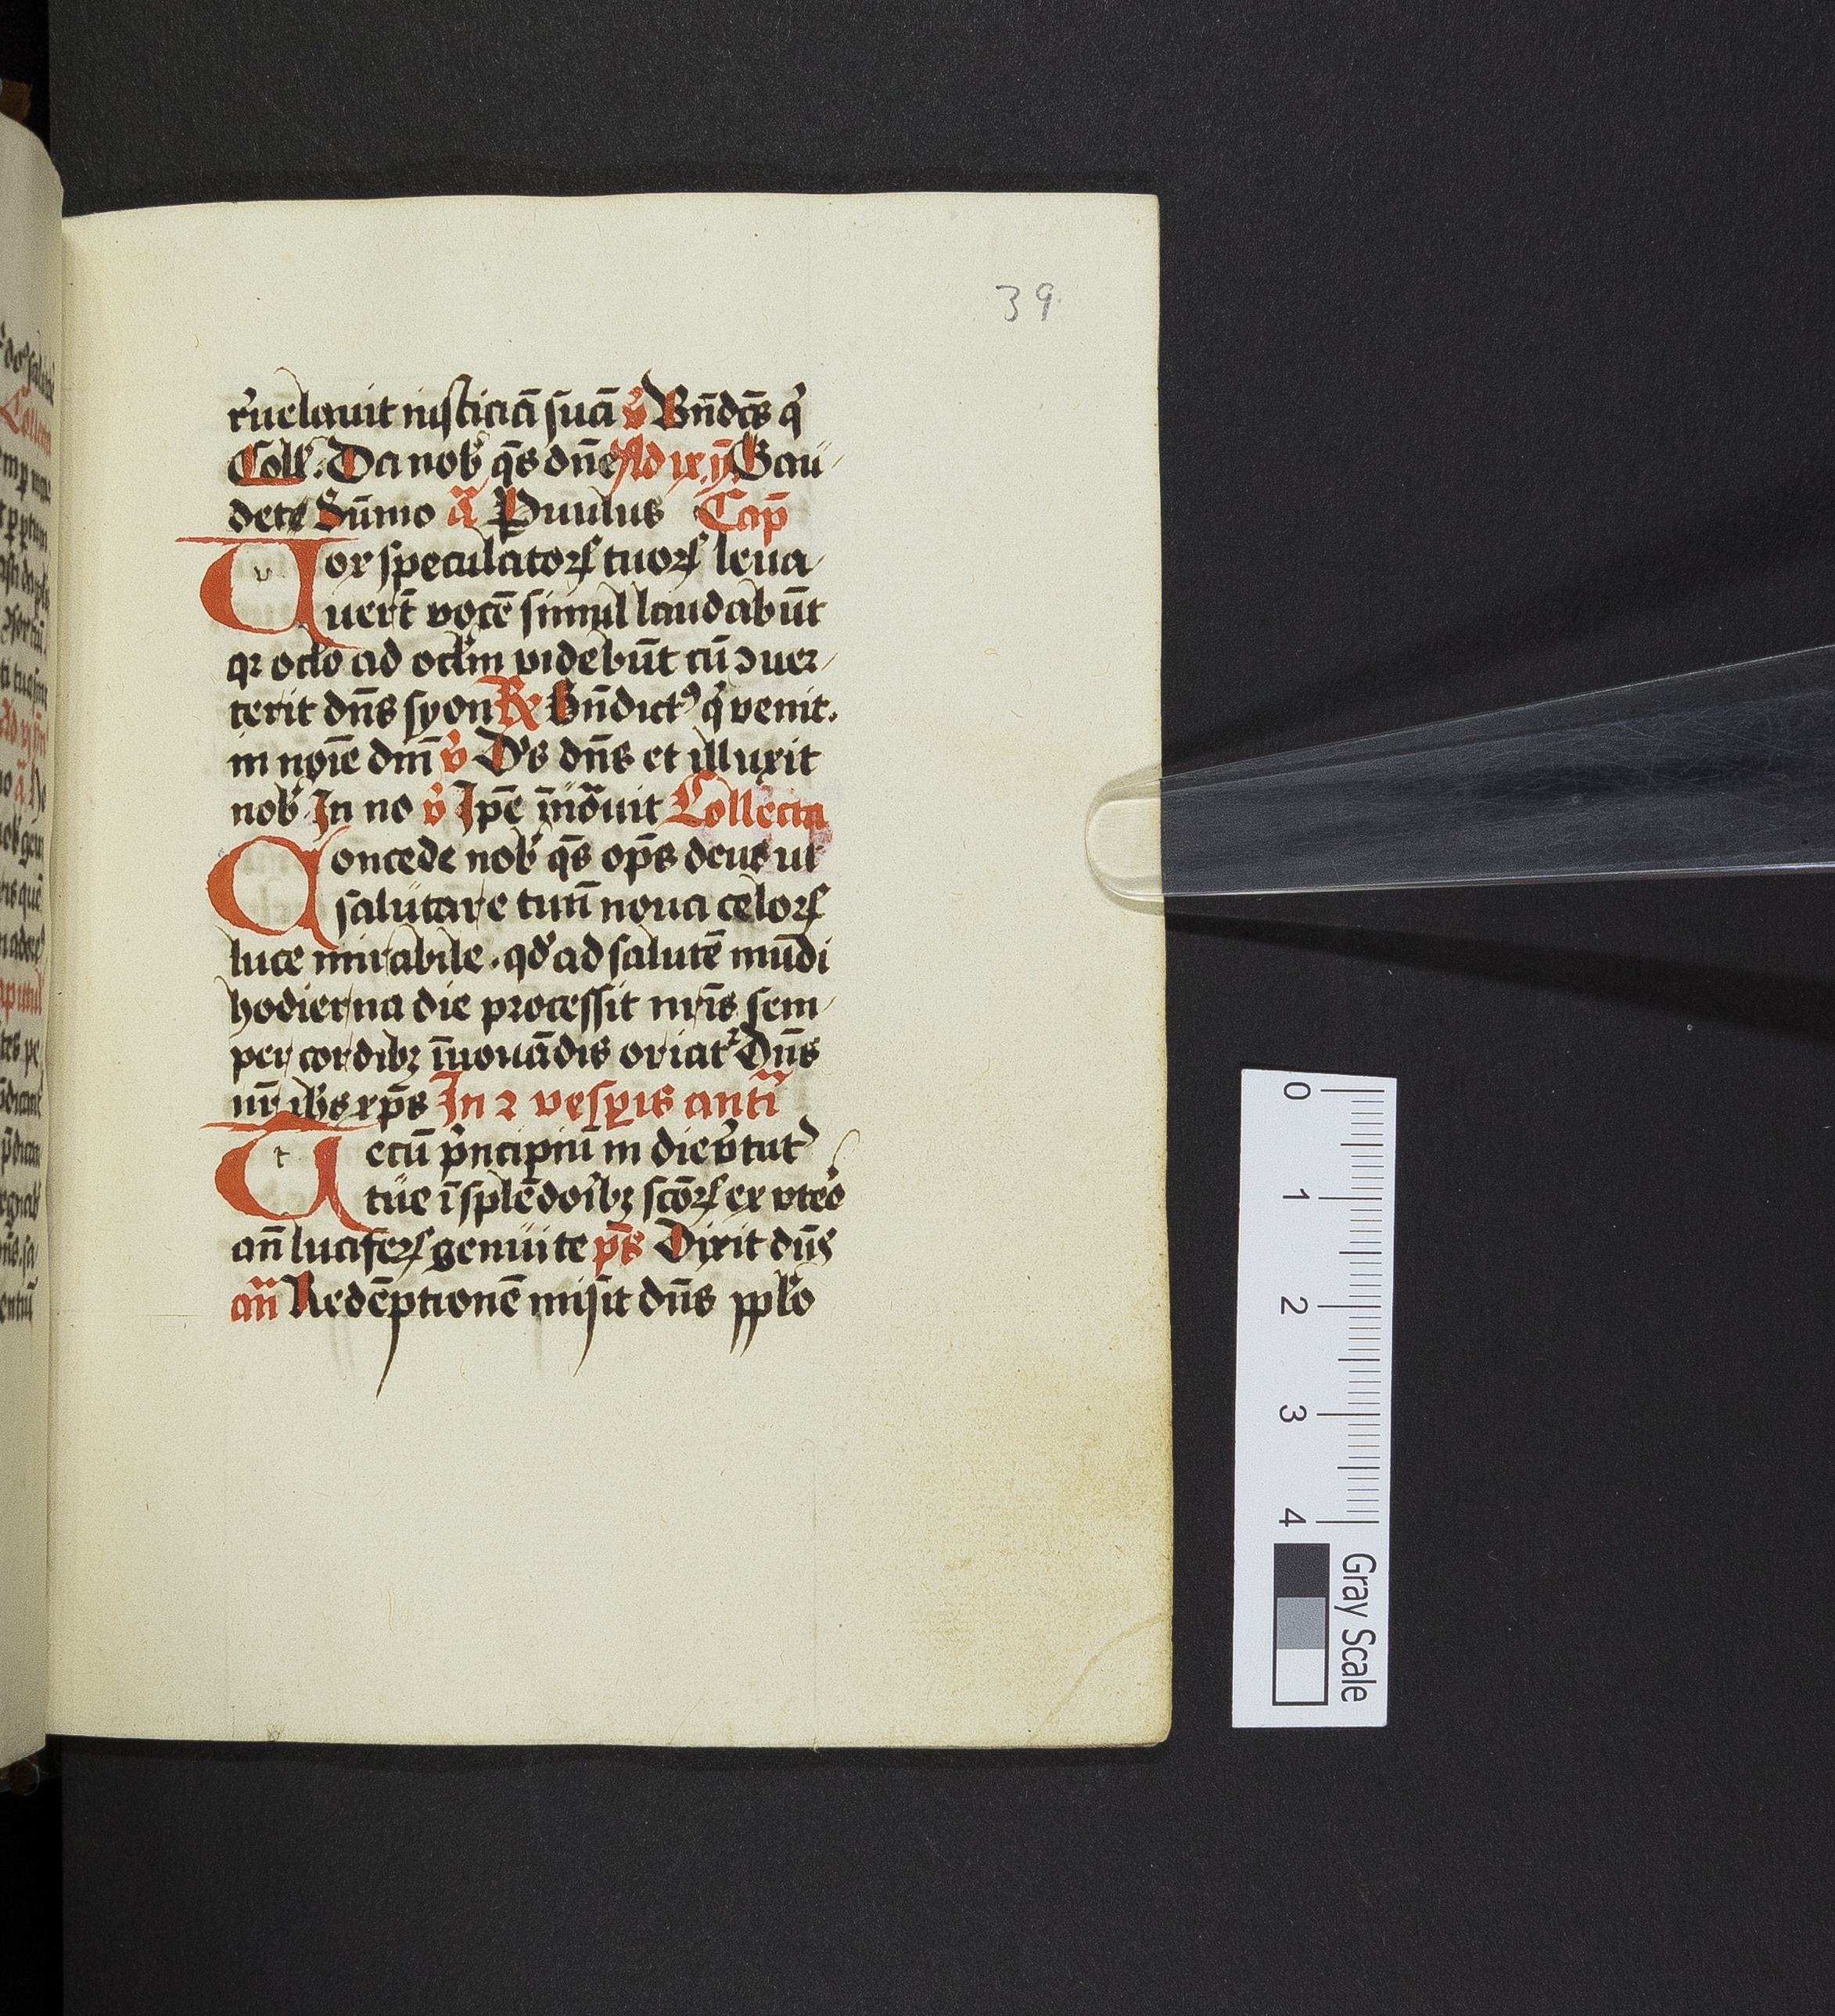 39
r̉uelauit iusticiā suā v̉ Bn̄dcs̄ q̉
Coll'. Da nob' qs̄ dn̄e Ad ix ym̄ Gau
dete Sūmo ā Puulus Cap̄
Vor speculatorꝝ tuorꝝ leua
uer̄t vocē simul laudabūt
qꝛ oclo ad oclm videbūt cū ꝯuer
terit dn̄s syon ℟ Bn̄dictꝰ q̉ venit.
in noīe dm̄ v̉ D's dn̄s et illuxit
nob' In no v̉ Ip̄e Collecta
Concede nob' qs̄ op̄s deus ut
salutare tuū noua celorꝝ
luce mirabile . qd' ad salutē mūdi
hodierna die processit nr̄is sem
per cordibꝫ īnouādis oriat̉ Dn̄s
nr̄ ih̄s xp̄s In 2 vesp̱is anti
Tecū p̉ncipiū in die v̉tut
tue ī splēdoribꝫ sc̄orꝝ ex vteo
an̄ luciferꝝ genui te ps̄ Dixit dn̄s
an̄ Redēptionē misit dn̄s pplo
0
1
2
3
4
Gray Scale